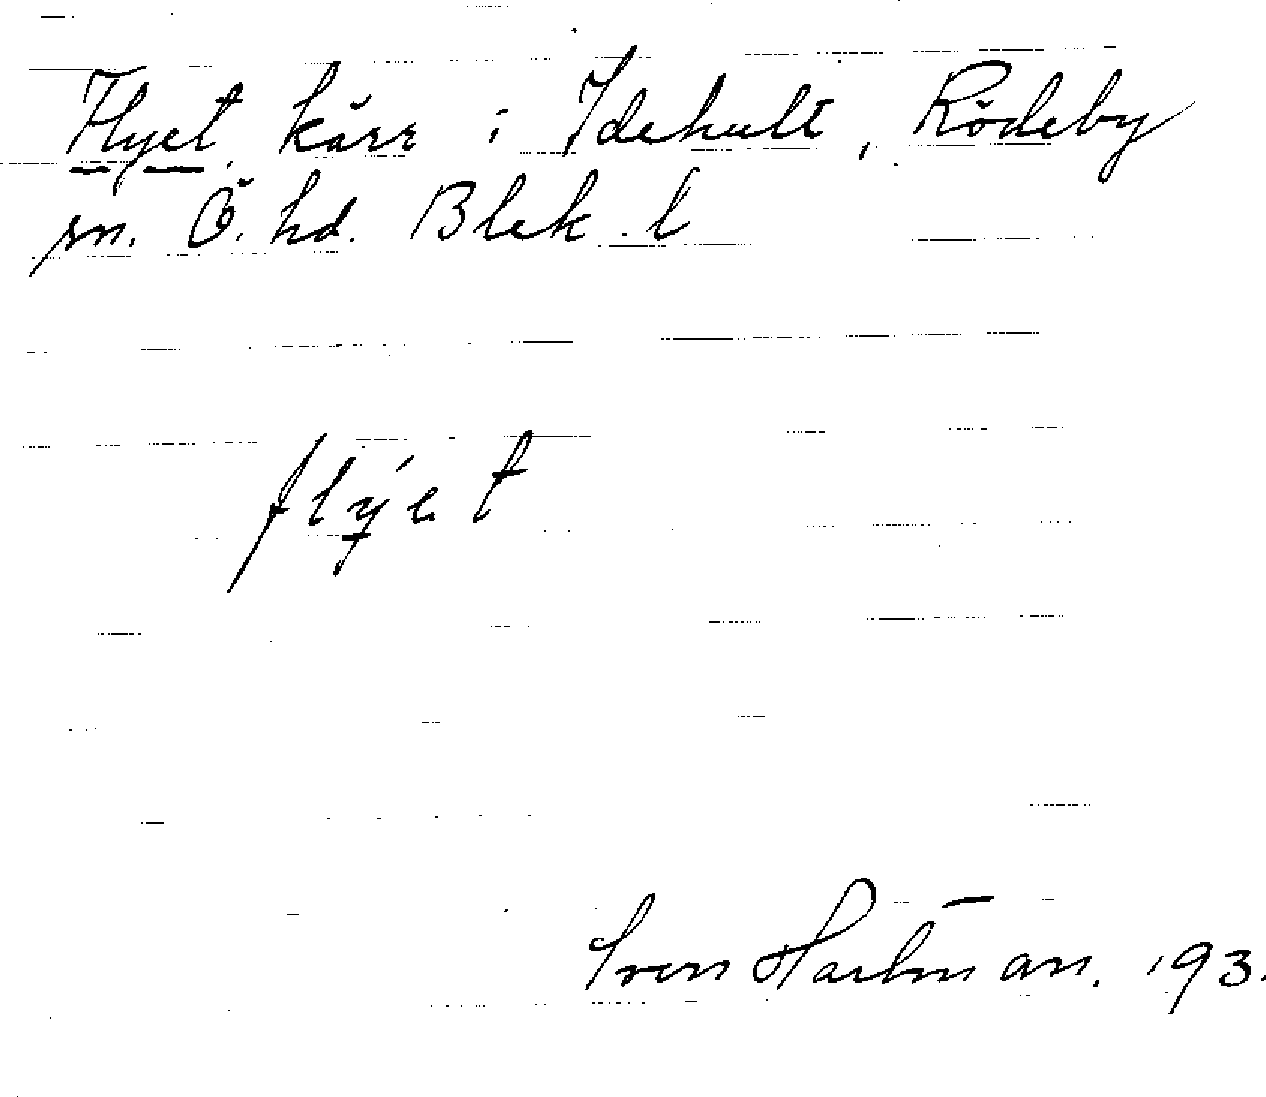 Flyet, kärr i Idehult, Rödeby
sn. Ö. hd. Blek. l
flýet
Sven Hartman. 193.